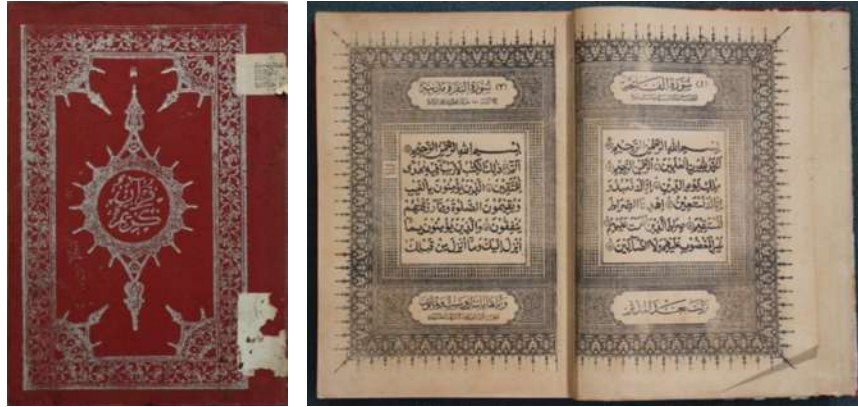 قرآن
كريم
(١) سُورَةُ الْفَاتِحَةِ
بِسْمِ اللهِ الرَّحْمٰنِ الرَّحِيْمِ
اَلْحَمْدُ لِلّٰهِ رَبِّ الْعٰلَمِيْنَ الرَّحْمٰنِ الرَّحِيْمِ
مٰلِكِ يَوْمِ الدِّيْنِ اِيَّاكَ نَعْبُدُ وَ
اِيَّاكَ نَسْتَعِيْنُ اِهْدِنَا الصِّرَاطَ
الْمُسْتَقِيْمَ صِرَاطَ الَّذِيْنَ اَنْعَمْتَ عَلَيْهِمْ
غَيْرِ الْمَغْضُوْبِ عَلَيْهِمْ وَلَا الضَّآلِّيْنَ
(٢) سُورَةُ الْبَقَرَةِ مَدَنِيَّة
بِسْمِ اللهِ الرَّحْمٰنِ الرَّحِيْمِ
الٓمّٓ ذٰلِكَ الْكِتٰبُ لَا رَيْبَ فِيْهِ هُدًى
لِّلْمُتَّقِيْنَ الَّذِيْنَ يُؤْمِنُوْنَ بِالْغَيْبِ
وَيُقِيْمُوْنَ الصَّلٰوةَ وَمِمَّا رَزَقْنٰهُمْ
يُنْفِقُوْنَ وَالَّذِيْنَ يُؤْمِنُوْنَ بِمَا
اُنْزِلَ اِلَيْكَ وَمَا اُنْزِلَ مِنْ قَبْلِكَ